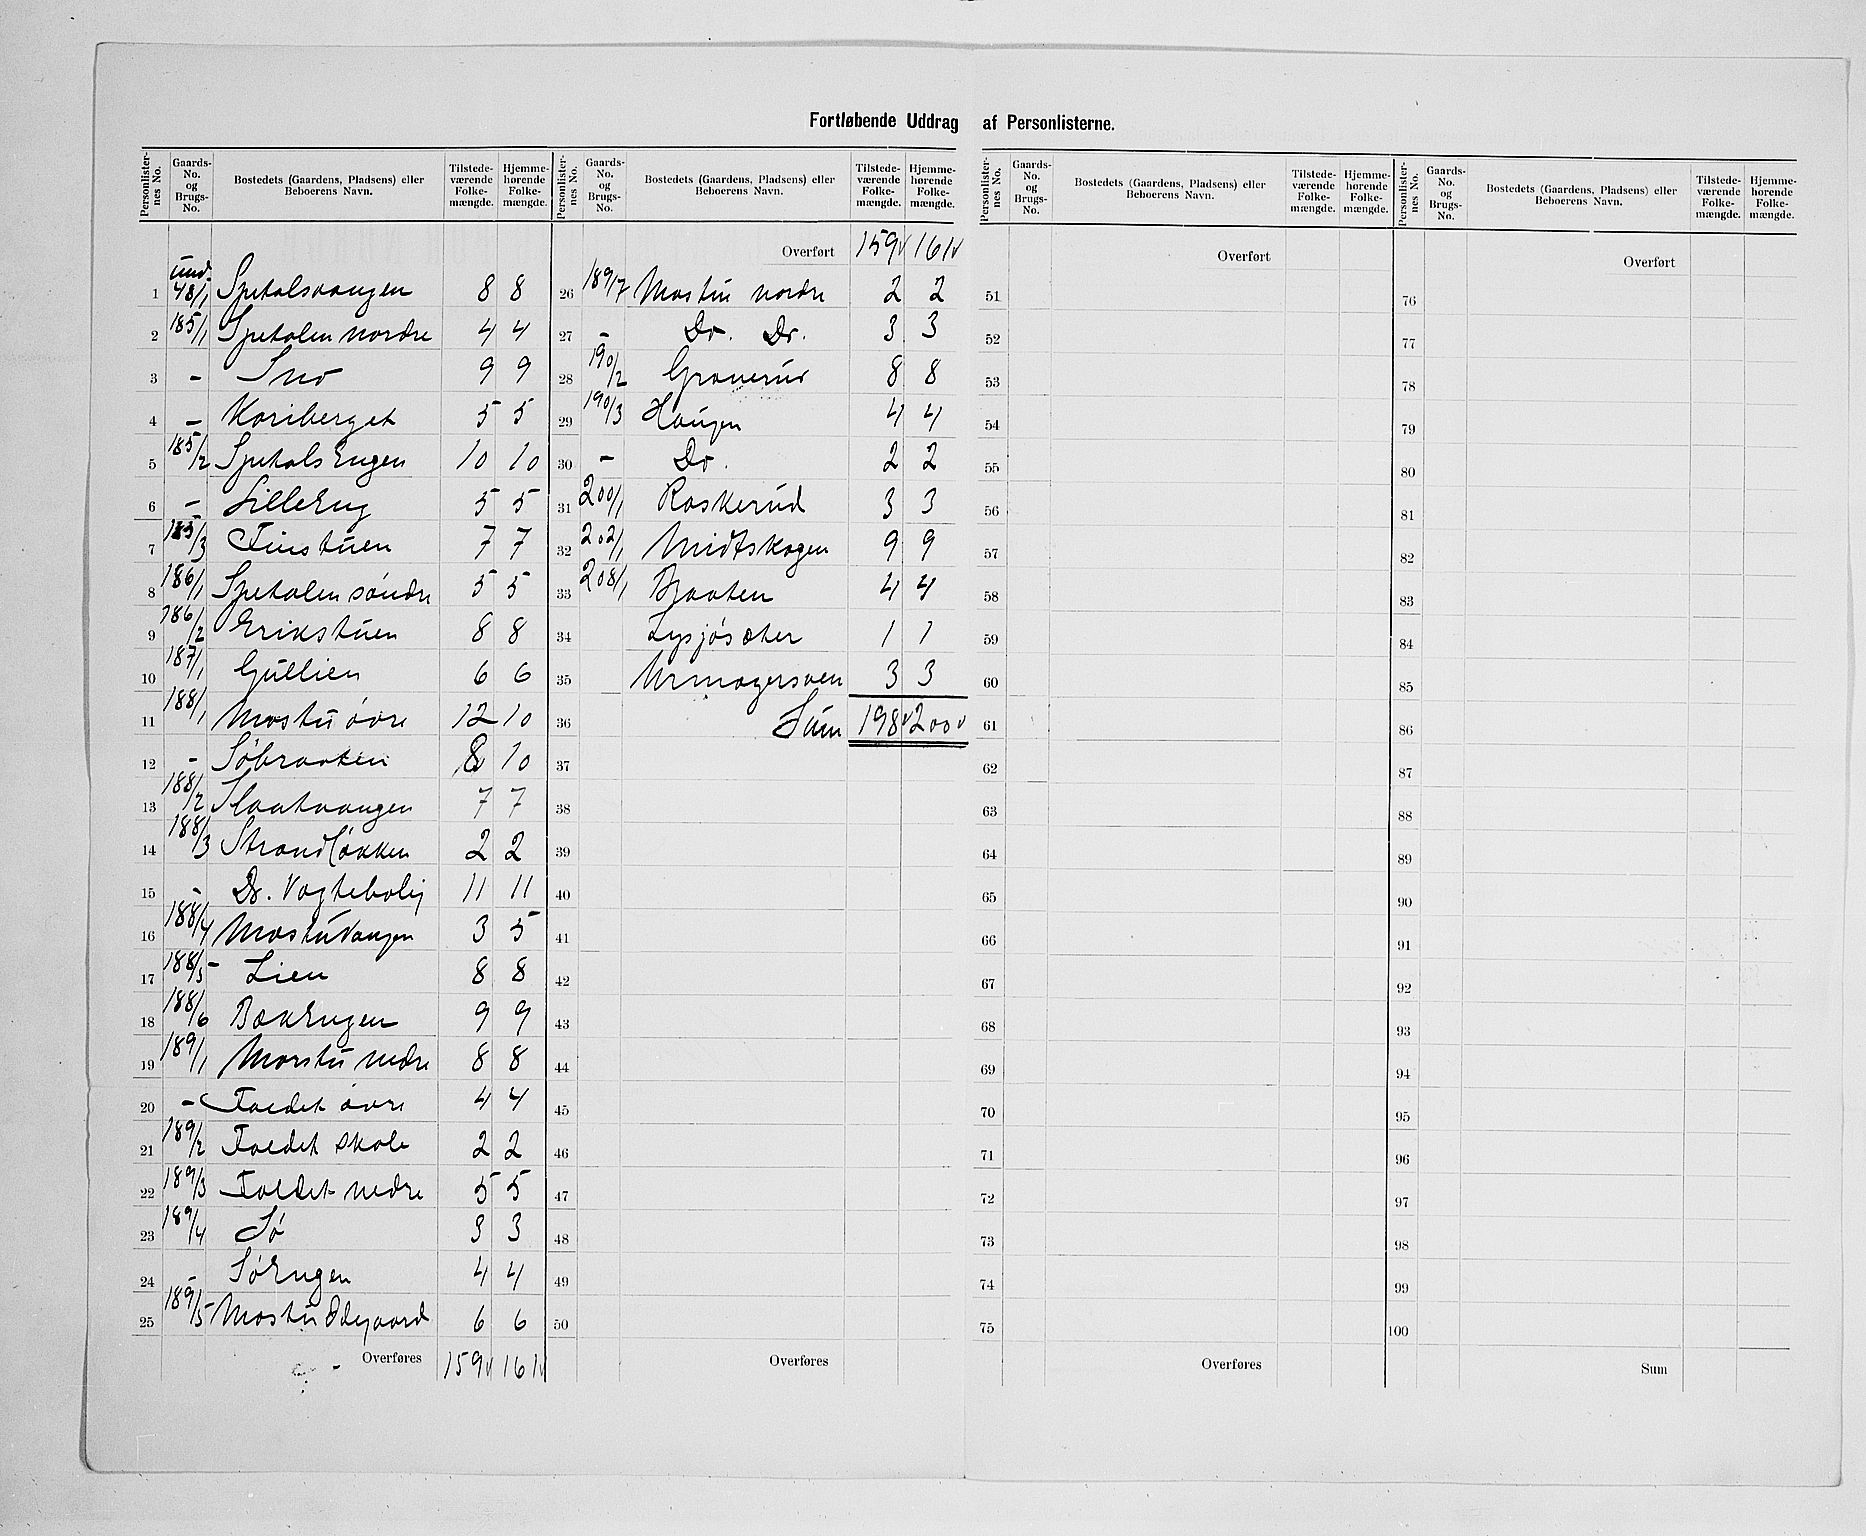 Fortløbende Uddrag af Personlisterne.
Personlisternes No. Gaards-No. og Brugs-No. Bostedets (Gaardens, Pladsens) eller Beboerens Navn. Tilstedeværende Folkemængde. Hjemmehørende Folkemængde.
Personlisternes No. Gaards-No. og Brugs-No. Bostedets (Gaardens, Pladsens) eller Beboerens Navn. Tilstedeværende Folkemængde. Hjemmehørende Folkemængde.
Personlisternes No. Gaards-No. og Brugs-No. Bostedets (Gaardens, Pladsens) eller Beboerens Navn. Tilstedeværende Folkemængde. Hjemmehørende Folkemængde.
Personlisternes No. Gaards-No. og Brugs-No. Bostedets (Gaardens, Pladsens) eller Beboerens Navn. Tilstedeværende Folkemængde. Hjemmehørende Folkemængde.
und.
1 48/1 Spetalsvangen 8 8
2 185/1 Spetalen nordre 4 4
3 - Sno 9 9
4 - Kariberget 5 5
5 185/2 SpetalsEngen 10 10
6 - LilleEng 5 5
7 185/3 Finstuen 7 7
8 186/1 Spetalen søndre 5 5
9 186/2 Erikstuen 8 8
10 187/1 Gullien 6 6
11 188/1 Mostu øvre 12 10
12 - Søbraaten 8 10
13 188/2 Slaatvangen 7 7
14 188/3 Strandløkken 2 2
15 - Do. Vogtebolig 11 11
16 188/4 MostuVangen 3 5
17 188/5 - Lien 8 8
18 188/6 BækEngen 9 9
19 189/1 Morstu nedre 8 8
20 - Foldet øvre 4 4
21 189/2 Foldet skole 2 2
22 189/3 Foldet nedre 5 5
23 189/4 Sø 3 3
24 - SøEngen 4 4
25 189/5 Mostu Ødegaard 6 6
Overføres 159 161
Overført 159 161
26 189/7 Mostu nordre 2 2
27 - Do. Do. 3 3
28 190/2 Graverud 8 8
29 190/3 Haugen 4 4
30 - Do. 2 2
31 200/1 Raskerud 3 3
32 202/1 Midtskogen 9 9
33 208/1 Braaten 4 4
34 Lysjøsæter 1 1
35 Urmagersven 3 3
36 Sum 198 200
37
38
39
40
41
42
43
44
45
46
47
48
49
50
Overføres
Overført
51
52
53
54
55
56
57
58
59
60
61
62
63
64
65
66
67
68
69
70
71
72
73
74
75
Overføres
Overført
76
77
78
79
80
81
82
83
84
85
86
87
88
89
90
91
92
93
94
95
96
97
98
99
100
Sum